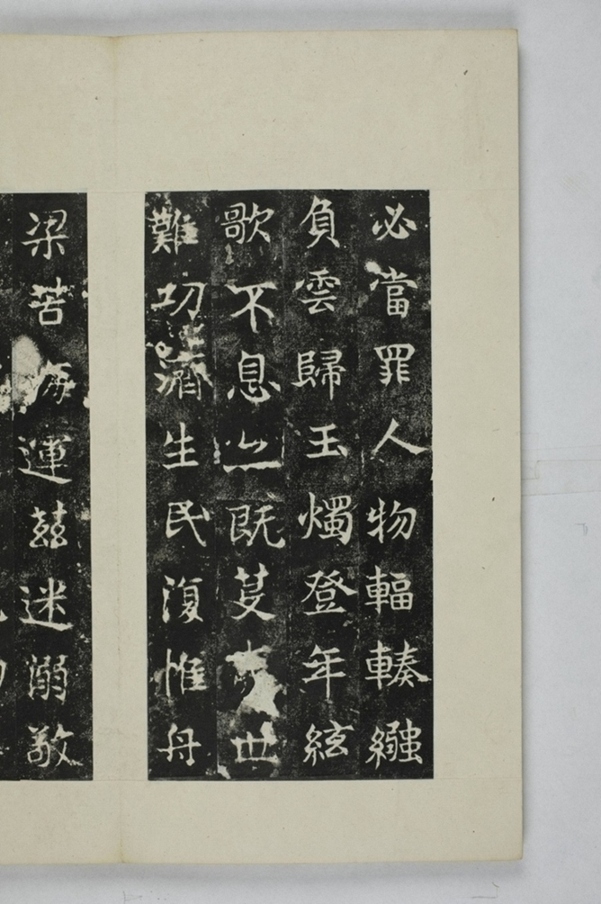 必當罪人物輻輳繈
負雲歸玉燭登年絃
歌不息此既芟世
難功濟生民復惟舟
梁苦海運茲迷溺敬